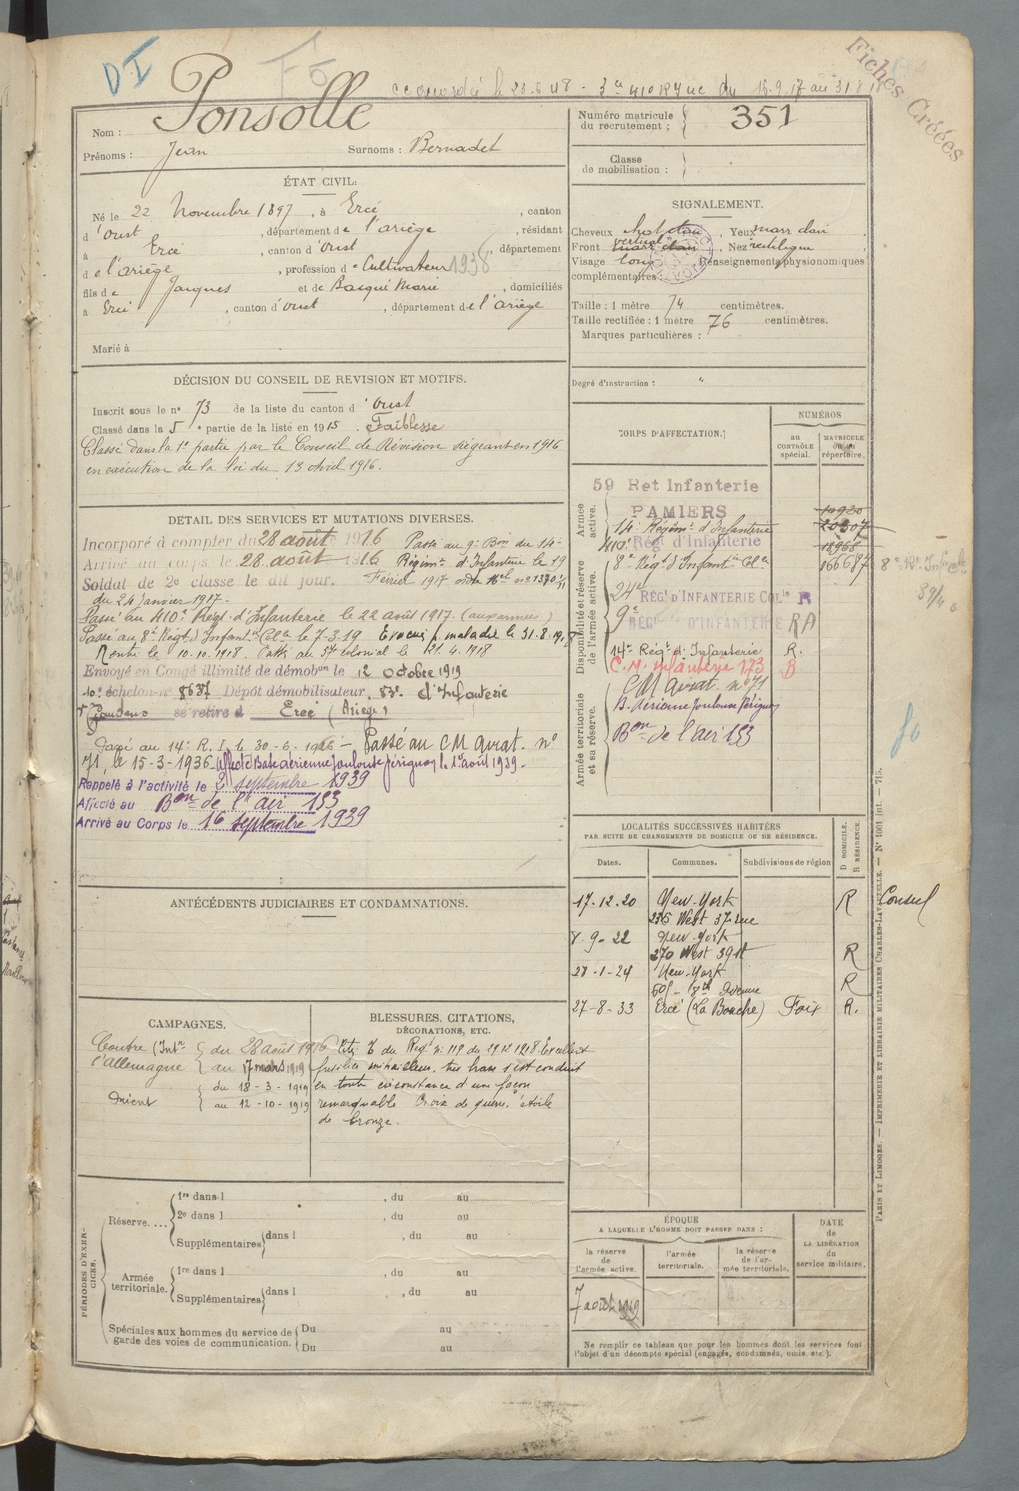 DI
F5
le 23.6.48 - 3 410 R du 15.9.17 au 31.8.18
Fiches Créées
Nom : Ponsolle
Prénoms : Jean Surnoms : Bernadet
Numéro matricule
du recrutement ; 351
Classe
de mobilisation :
ÉTAT CIVIL:
Né le 22 Novembre 1897, à Ercé, canton
d'Oust, département de l'ariège, résidant
à Ercé, canton d'Oust, département
de l'ariège, profession de Cultivateur 1938
fils de Jacques et de Bacqué Marie, domiciliés
à Ercé, canton d'Oust, département de l'ariège
Marié à
SIGNALEMENT.
Cheveux chat clair, Yeux marr clair
Front vertical marr clair, Nez rectiligne
Visage long, Renseignements physionomiques
complémentaires :
Taille : 1 mètre 74 centimètres.
Taille rectifiée : 1 mètre 76 centimètres.
Marques particulières :
Degré d'instruction : "
DÉCISION DU CONSEIL DE REVISION ET MOTIFS.
Inscrit sous le n° 73 de la liste du canton d'Oust
Classé dans la 5e partie de la liste en 1915. Faiblesse
Classé dans la 1e partie par le Conseil de Révision siégeant en 1916
en exécution de la loi du 13 Avril 1916.
DETAIL DES SERVICES ET MUTATIONS DIVERSES.
Incorporé à compter du 28 août 1916 Passé au 9e Bon du 14e
Arrivé au corps le 28 août 1916 Régiment d'Infanterie le 19
Soldat de 2e classe le dit jour. Février 1917 ordre
du 24 Janvier 1917-
Passé au 410e Régt d'Infanterie le 22 août 1917. (aux armées)
Passé au 8e Régt d'Infantie Colle le 7-3.19 Evacué malade le 31-8-1918
Rentré le 10.10.1918. Passé au 57 colonial le 21.4.1918
Envoyé en Congé illimité de démobon le 12 octobre 1919
10e échelon n° 8637 Dépôt démobilisateur, 83e d'Infanterie
se retire à Ercé (Ariège)
Passé au 14e R.I. le 30-6-1926 - Passé au CM aviat. n°
71, le 15-3-1936. affecté Base aérienne Toulouse Périgueux le 1er août 1939.
Rappelé à l'activité le 2 septembre 1939
Affecté au Bon de l'air 153
Arrivé au Corps le 16 septembre 1939
CORPS D'AFFECTATION.
NUMÉROS
au
CONTRÔLE
spécial.
MATRICULE
ou au
répertoire.
Armée
active.
59 Ret Infanterie
PAMIERS
14e Régimt d'Infanterie 20207
410e Régt d'Infanterie
8e Régt d'Infantie Colle 16667
Disponibilité et réserve
de l'armée active.
24e RÉGt d'INFANTERIE Colle R
9e RÉGIE D'INFANTERIE RA
14e Régt d'Infanterie R.
C.M. Infanterie 173 B
Armée territoriale
et sa réserve.
CM aviat. n° 71
B. Aérienne Toulouse Périgueux
Bon de l'air 153
LOCALITÉS SUCCESSIVES HABITÉES
PAR SUITE DE CHANGEMENTS DE DOMICILE OU DE RÉSIDENCE.
D DOMICILE.
R RÉSIDENCE.
Dates. Communes. Subdivisions de région
17.12.20 New-York R Consul
236 West 37 rue
8-9-22 New-York
270 West 39 st R
28-1-24 New-York
601 - 8th Avenue R
27-8-33 Ercé (La Bouche) Foix R.
ANTÉCÉDENTS JUDICIAIRES ET CONDAMNATIONS.
CAMPAGNES.
Contre (Intre du 28 août 1916
l'Allemagne au 17 mars 1919
Orient du 18-3-1919
au 12-10-1919
BLESSURES, CITATIONS,
DÉCORATIONS, ETC.
Cité à du Régt n° 119 du 29 12 1918 Excellent
fusilier mitrailleur, très brave s'est conduit
en toute circonstance d'une façon
remarquable Croix de guerre, étoile
de bronze.
PÉRIODES D'EXERCICES.
Réserve....
1re dans l , du au
2e dans l , du au
Supplémentaires dans l , du au
Armée
territoriale.
1re dans l , du au
Supplémentaires dans l , du au
Spéciales aux hommes du service de
garde des voies de communication.
Du au
Du au
ÉPOQUE
A LAQUELLE L'HOMME DOIT PASSER DANS :
la réserve
de
l'armée active.
l'armée
territoriale.
la réserve
de l'ar-
mée territoriale.
DATE
de
LA LIBÉRATION
du
service militaire.
7 août 1919
Ne remplir ce tableau que pour les hommes dont les services font
l'objet d'un décompte spécial (engagés, condamnés, omis, etc.).
PARIS ET LIMOGES. — IMPRIMERIE ET LIBRAIRIE MILITAIRES CHARLES-LAVAUZELLE. — N° 1001 int. — 715.